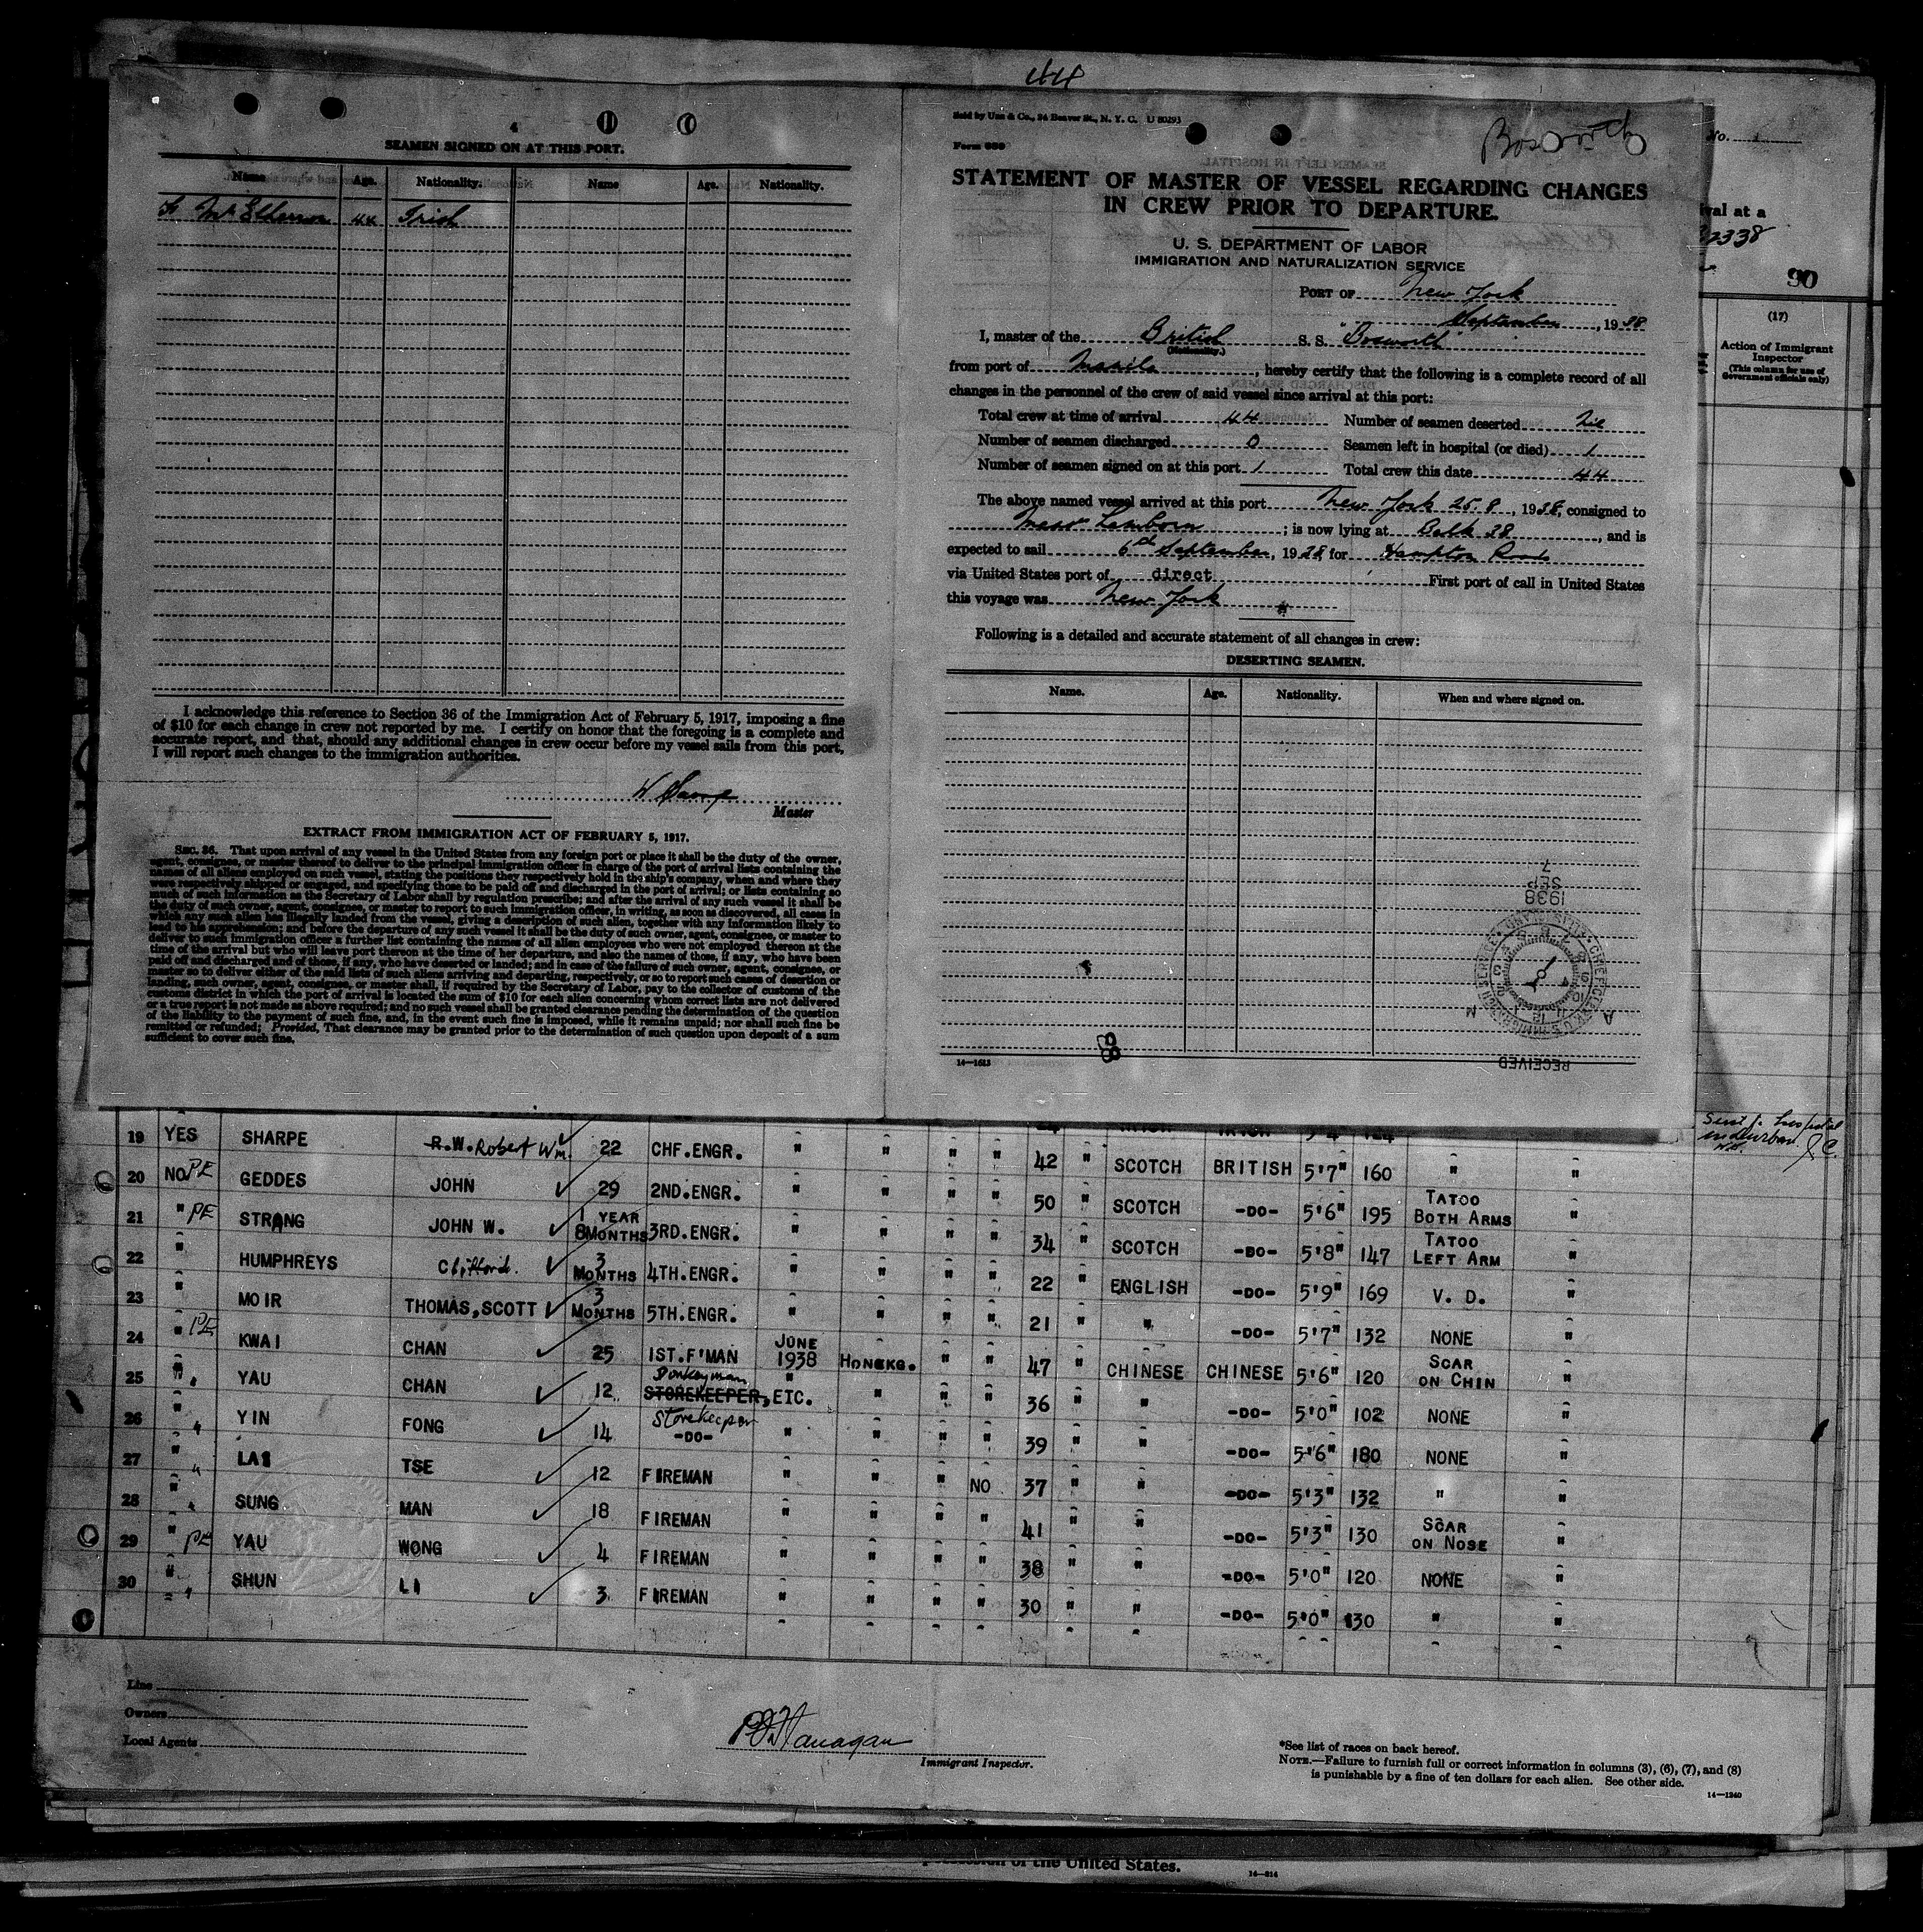 44
4
SEAMEN SIGNED ON AT THIS PORT.
Name Age. Nationality. Name Age. Nationality.
44 Irish
I acknowledge this reference to Section 36 of the Immigration Act of February 5, 1917, imposing a fine
of $10 for each change in crew not reported by me. I certify on honor that the foregoing is a complete and
accurate report, and that, should any additional changes in crew occur before my vessel sails from this port,
I will report such changes to the immigration authorities.
Master
EXTRACT FROM IMMIGRATION ACT OF FEBRUARY 5, 1917.
SEC. 36. That upon arrival of any vessel in the United States from any foreign port or place it shall be the duty of the owner,
agent, consignee, or master thereof to deliver to the principal immigration officer in charge of the port of arrival lists containing the
names of all aliens employed on such vessel, stating the positions they respectively hold in the ship's company, when and where they
were respectively shipped or engaged, and specifying those to be paid off and discharged in the port of arrival; or lists containing so
much of such information as the Secretary of Labor shall by regulation prescribe; and after the arrival of any such vessel it shall be
the duty of such owner, agent, consignee, or master to report to such immigration officer, in writing, as soon as discovered, all cases in
which any such alien has illegally landed from the vessel, giving a description of such alien, together with any information likely to
lead to his apprehension; and before the departure of any such vessel it shall be the duty of such owner, agent, consignee, or master to
deliver to such immigration officer a further list containing the names of all alien employees who were not employed thereon at the
time of the arrival but who will leave port thereon at the time of her departure, and also the names of those, if any, who have been
paid off and discharged and of those, if any, who have deserted or landed; and in case of the failure of such owner, agent, consignee, or
master so to deliver either of the said lists of such aliens arriving and departing, respectively, or so to report such cases of desertion or
landing, such owner, agent, consignee, or master shall, if required by the Secretary of Labor, pay to the collector of customs of the
customs district in which the port of arrival is located the sum of $10 for each alien concerning whom correct lists are not delivered
or a true report is not made as above required; and no such vessel shall be granted clearance pending the determination of the question
of the liability to the payment of such fine, and, in the event such fine is imposed, while it remains unpaid; nor shall such fine be
remitted or refunded; Provided, That clearance may be granted prior to the determination of such question upon deposit of a sum
sufficient to cover such fine.
Sold by Unz & Co., 24 Beaver St., N. Y. C. U 80293
Form 689
Bosworth
STATEMENT OF MASTER OF VESSEL REGARDING CHANGES
IN CREW PRIOR TO DEPARTURE.
U. S. DEPARTMENT OF LABOR
IMMIGRATION AND NATURALIZATION SERVICE
PORT OF New York
September, 1938
I, master of the British S. S. "Bosworth"
(Nationality.)
from port of Manila, hereby certify that the following is a complete record of all
changes in the personnel of the crew of said vessel since arrival at this port:
Total crew at time of arrival 44 Number of seamen deserted Nil
Number of seamen discharged 0 Seamen left in hospital (or died) 1
Number of seamen signed on at this port 1 Total crew this date 44
The above named vessel arrived at this port New York 25.8, 1938, consigned to
; is now lying at 38, and is
expected to sail 6th September, 1938, for Hampton Roads
via United States port of direct First port of call in United States
this voyage was New York
Following is a detailed and accurate statement of all changes in crew:
DESERTING SEAMEN.
Name. Age. Nationality. When and where signed on.
1938
SEP
7
RECEIVED
14—1613
No.
val at a
90
(17)
Action of Immigrant
Inspector
(This column for use of
Government officials only)
Sent to hospital
19 YES SHARPE R.W. Robert Wm. 22 CHF.ENGR. " " " " 42 " SCOTCH BRITISH 5'7" 160 " "
20 NO PE GEDDES JOHN 29 2ND.ENGR. " " " " 50 " SCOTCH -DO- 5'6" 195 TATOO BOTH ARMS "
21 " PE STRANG JOHN W. 1 YEAR 8MONTHS 3RD.ENGR. " " " " 34 " SCOTCH -DO- 5'8" 147 TATOO LEFT ARM "
22 " HUMPHREYS Clifford. 3 MONTHS 4TH.ENGR. " " " " 22 " ENGLISH -DO- 5'9" 169 V. D. "
23 " MOIR THOMAS,SCOTT 3 MONTHS 5TH.ENGR. " " " " 21 " " -DO- 5'7" 132 NONE "
24 " PE KWAI CHAN 25 1ST.F'MAN JUNE 1938 HONGKG. " " 47 " CHINESE CHINESE 5'6" 120 SCAR ON CHIN "
25 " " YAU CHAN 12 Donkeyman STOREKEEPER, ETC. " " " " 36 " " -DO- 5'0" 102 NONE "
26 " " YIN FONG 14 Storekeeper -DO- " " " " 39 " " -DO- 5'6" 180 NONE "
27 " " LAI TSE 12 FIREMAN " " " NO 37 " " -DO- 5'3" 132 " "
28 " " SUNG MAN 18 FIREMAN " " " " 41 " " -DO- 5'3" 130 SCAR ON NOSE "
29 " PE YAU WONG 4 FIREMAN " " " " 38 " " -DO- 5'0" 120 NONE "
30 " " SHUN LI 3 FIREMAN " " " " 30 " " -DO- 5'0" 130 " "
Line
Owners
Local Agents
Immigrant Inspector.
*See list of races on back hereof.
NOTE.—Failure to furnish full or correct information in columns (3), (6), (7), and (8)
is punishable by a fine of ten dollars for each alien. See other side.
14—1240
of the United States.
14—214